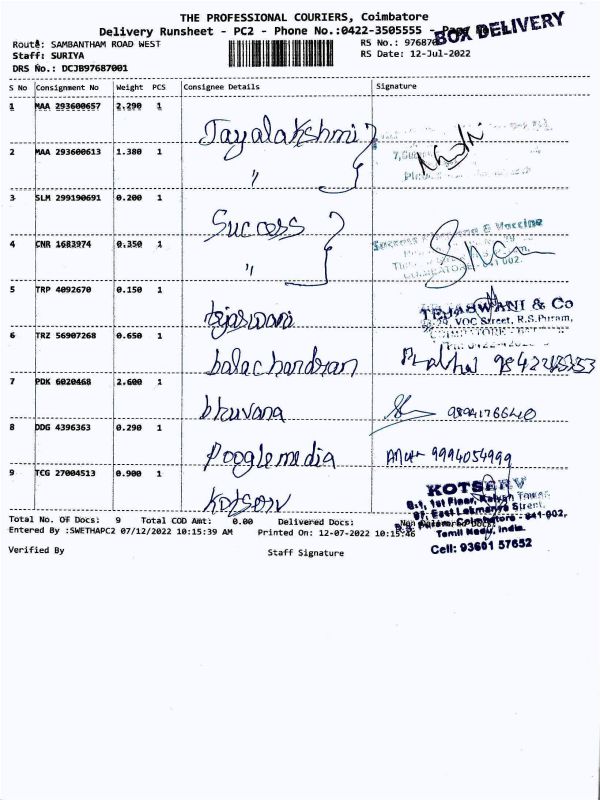 THE PROFESSIONAL COURIERS, Coimbatore
Delivery Runsheet - PC2 - Phone No.:0422-3505555 - Page No
BOX DELIVERY
Route: SAMBANTHAM ROAD WEST RS No.: 97687
Staff: SURIYA RS Date: 12-Jul-2022
DRS No.: DCJB97687001
S No Consignment No Weight PCS Consignee Details Signature
1 MAA 293600657 2.290 1 Jayalakshmi
2 MAA 293600613 1.380 1 "
3 SLM 299190691 0.200 1 Success
4 CNR 1683974 0.350 1 "
5 TRP 4092670 0.150 1 tejaswani TEJASWANI & Co
VOC Street, R.S.Puram,
6 TRZ 56907268 0.650 1 balachandran
7 PDK 6020468 2.600 1 bhuvana 9894176640
8 DDG 4396363 0.290 1 Pooglemedia 9994054999
9 TCG 27004513 0.900 1 Kotserv KOTSERV
1st Floor, Kalyan Tower,
East Lokmanya Street,
Coimbatore - 641-002.
Tamil Nadu, India.
Cell: 93601 57652
Total No. Of Docs: 9 Total COD Amt: 0.00 Delivered Docs:
Entered By :SWETHAPC2 07/12/2022 10:15:39 AM Printed On: 12-07-2022 10:15:46
Verified By Staff Signature